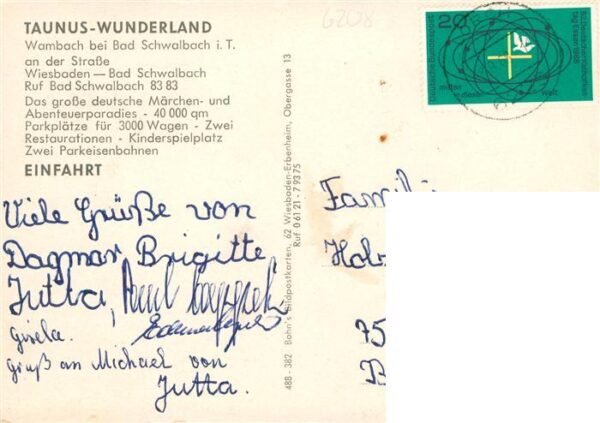 TAUNUS-WUNDERLAND
Wambach bei Bad Schwalbach i. T.
an der Straße
Wiesbaden — Bad Schwalbach
Ruf Bad Schwalbach 83 83
Das große deutsche Märchen- und
Abenteuerparadies - 40 000 qm
Parkplätze für 3000 Wagen - Zwei
Restaurationen - Kinderspielplatz
Zwei Parkeisenbahnen
EINFAHRT
Viele Grüße von
Dagmar Brigitte
Jutta,
Gisela.
gruß an Michael von
Jutta.
48B - 382 Bohn's Bildpostkarten, 62 Wiesbaden-Erbenheim, Obergasse 13
Ruf 0 61 21 - 7 93 75
6208
20
Deutsche Bundespost
82. Deutscher Katholikentag Essen 1968
mitten
in dieser Welt
Famili
Hol
75